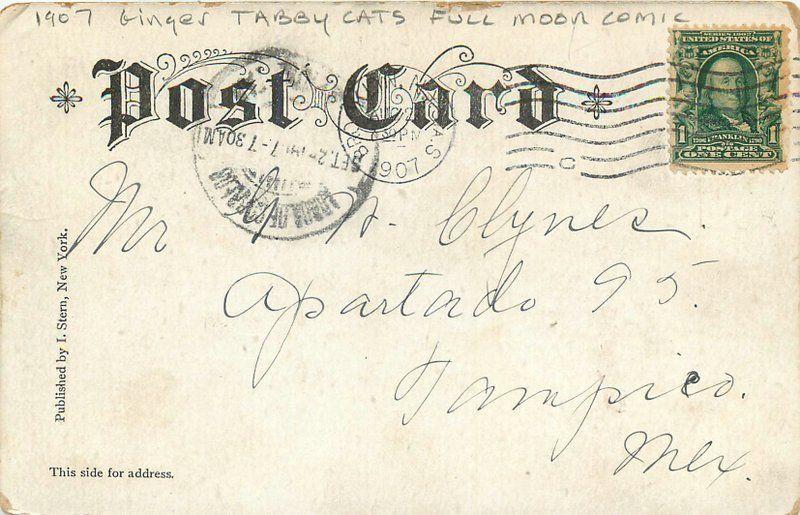 1907 Ginger TABBY CATS FULL MOON COMIC
Post Card
SERIES 1902
UNITED STATES OF
AMERICA
1 FRANKLIN 1
POSTAGE
ONE CENT
MASS
PM
1907
7-7.30AM
Mr H. Clynes
Apartado 95.
Tampico.
Mex.
Published by I. Stern, New York.
This side for address.